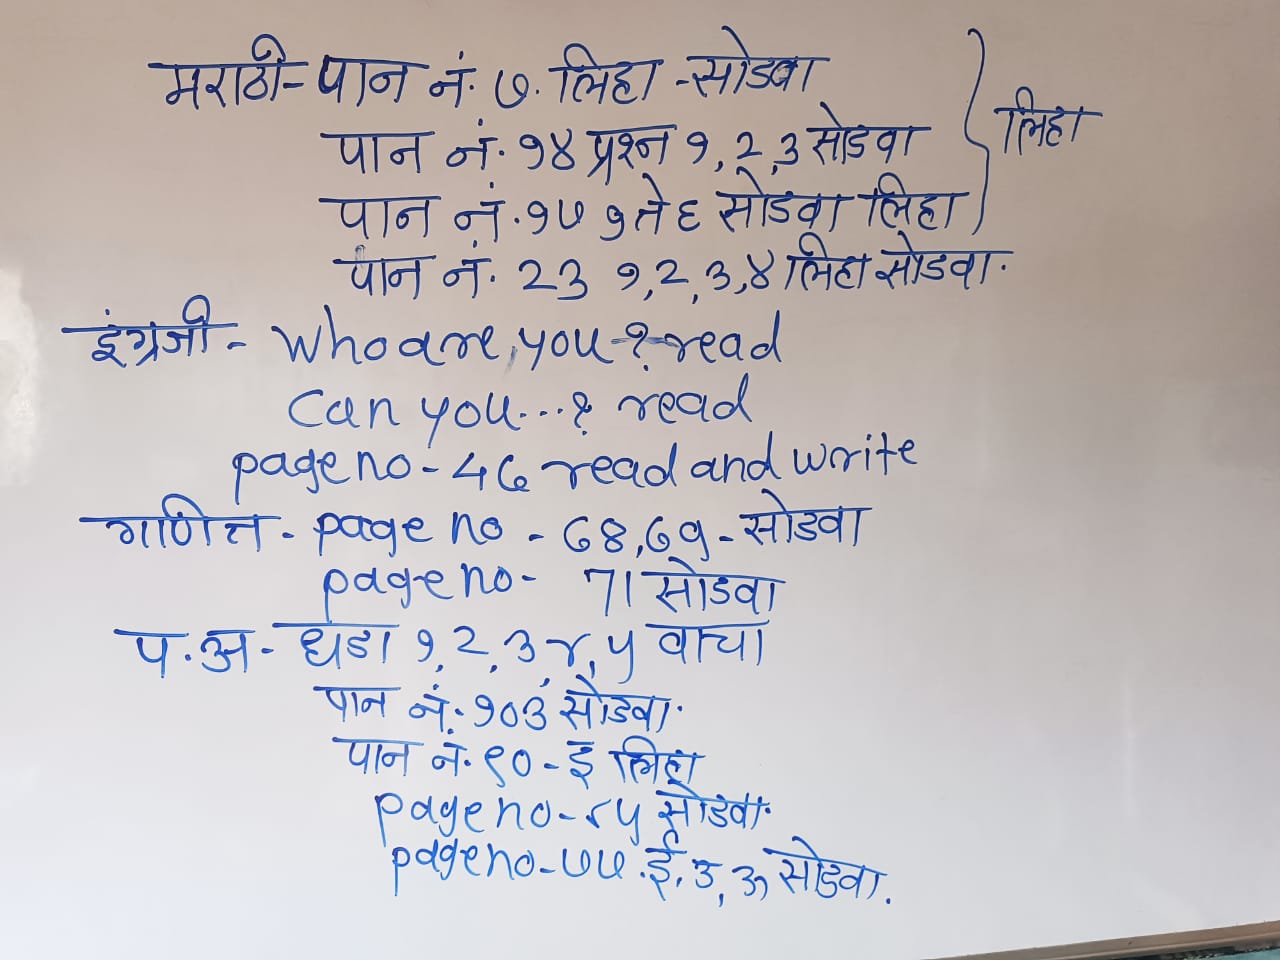 मराठी - पान नं. ७. लिहा - सोडवा
पान नं. १४ प्रश्न १, २, ३ सोडवा } लिहा
पान नं. १७ १ ते ६ सोडवा लिहा
पान नं. २३ १, २, ३, ४ लिहा सोडवा.
इंग्रजी - Who are, you - ? read
Can you...? read
page no - 46 read and write
गणित - page no - 68, 69 - सोडवा
page no - 71 सोडवा
प. अ - धडा १, २, ३, ४, ५ वाचा
पान नं. १०३ सोडवा.
पान नं. ९० - इ लिहा
page no - ८५ सोडवा.
page no - ७५. ई, उ, ऊ सोडवा.